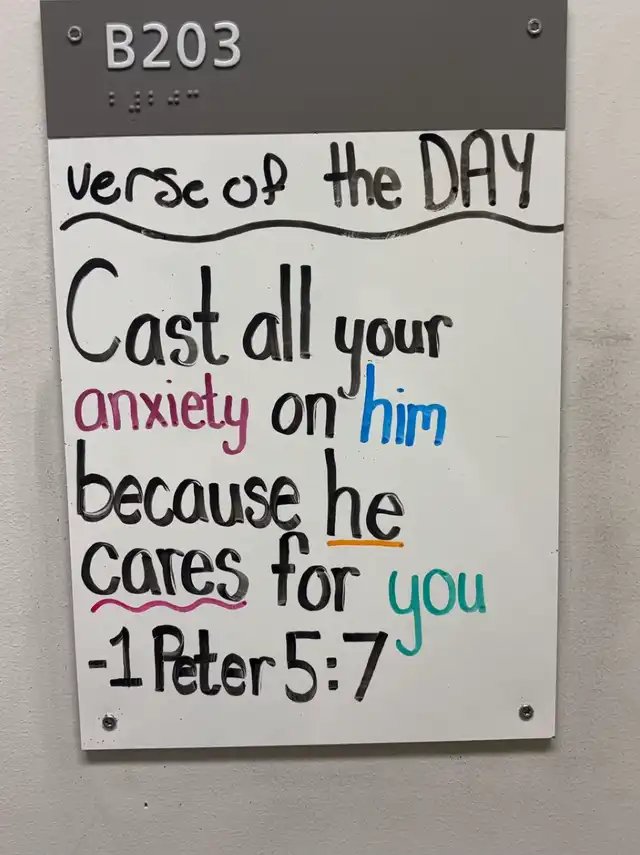 B203
verse of the DAY
Cast all your
anxiety on him
because he
cares for you
-1 Peter 5:7